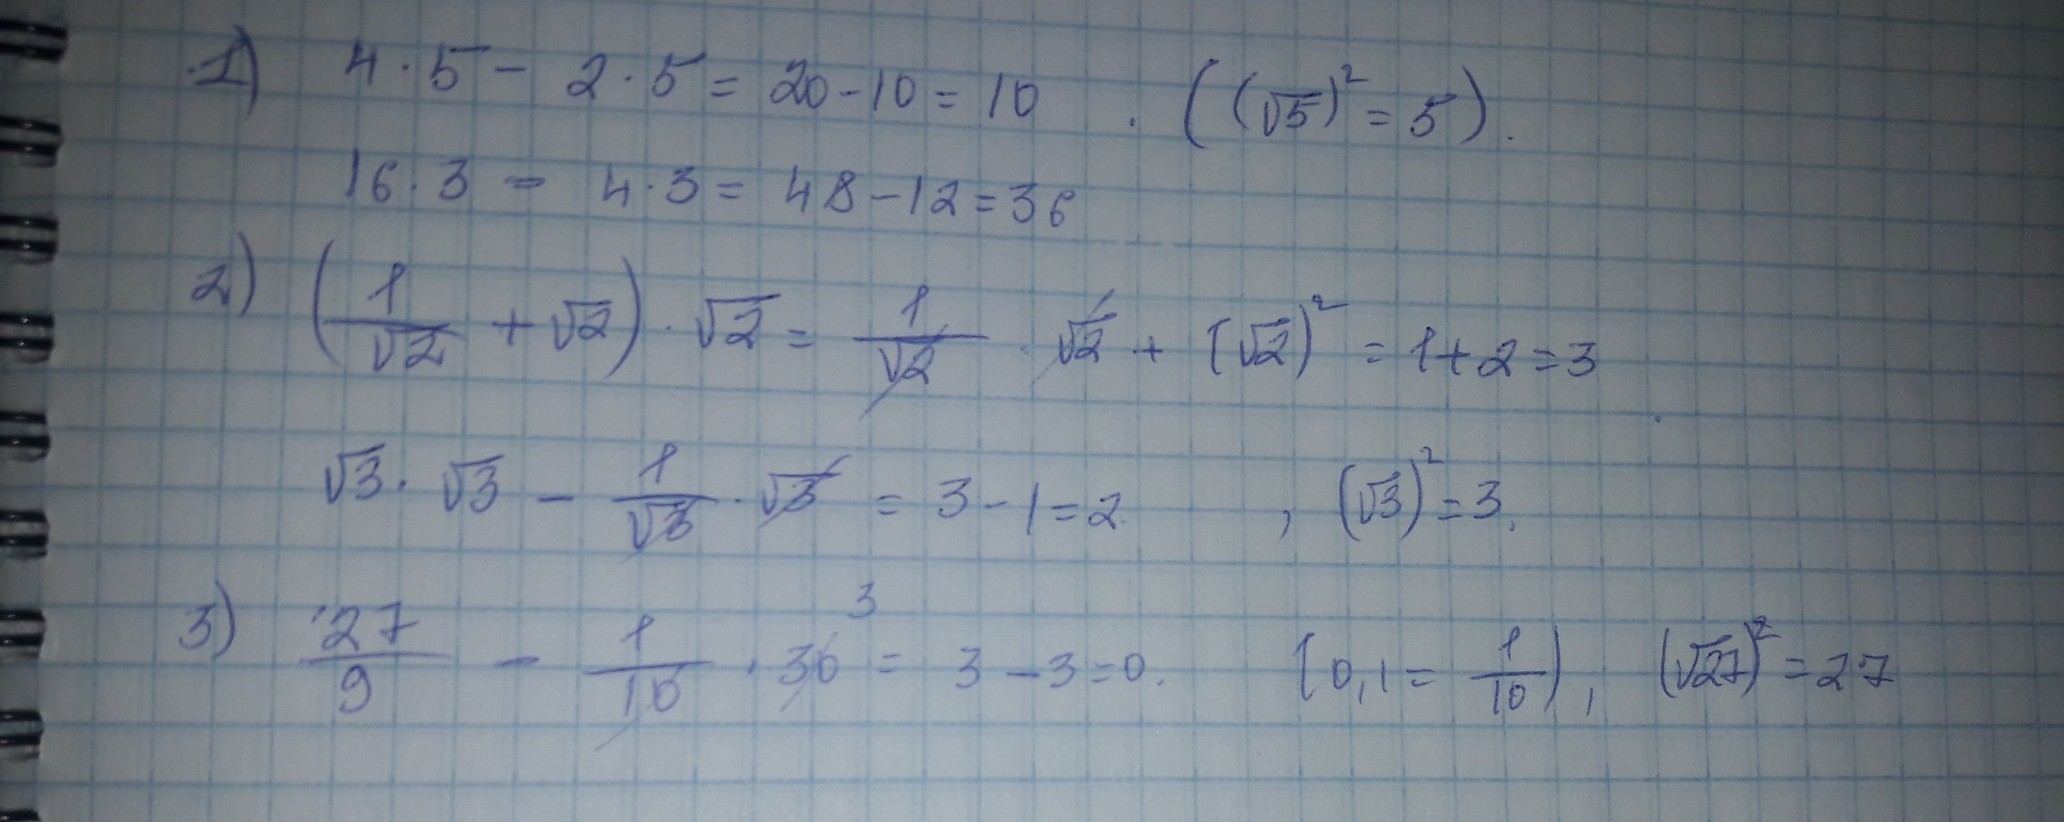 1) 4·5 - 2·5 = 20-10 = 10 . ((√5)² = 5).
16·3 - 4·3 = 48-12=36
2) (1/√2 + √2)·√2 = 1/√2 · √2 + (√2)² = 1+2=3
√3·√3 - 1/√3 · √3 = 3-1=2. , (√3)²=3.
3) 27/9 - 1/10 · 30 3 = 3-3=0. (0,1= 1/10), (√27)²=27